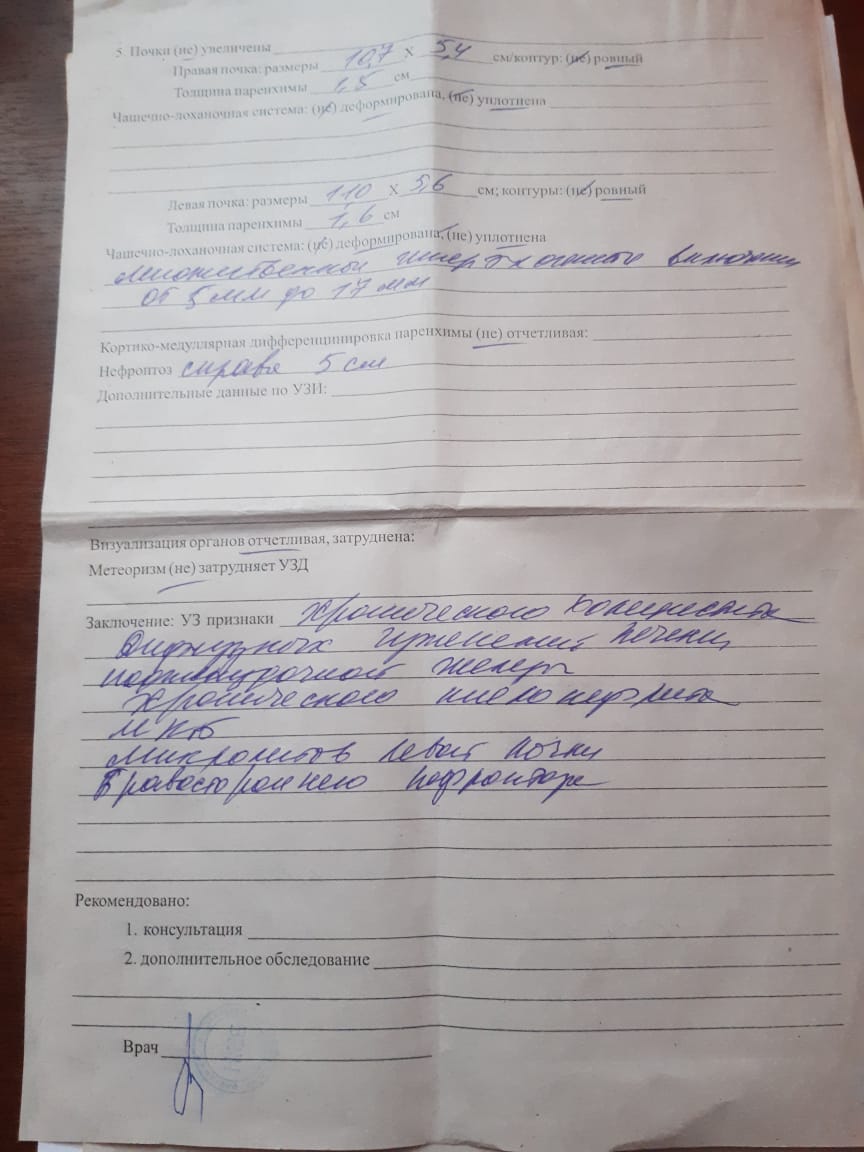 5. Почки (не) увеличены
Правая почка: размеры 10,7 х 5,4 см/контур: (не) ровный
Толщина паренхимы 1,5 см
Чашечно-лоханочная система: (не) деформирована, (не) уплотнена
Левая почка: размеры 11,0 х 5,6 см; контуры: (не) ровный
Толщина паренхимы 1,6 см
Чашечно-лоханочная система: (не) деформирована, (не) уплотнена
множественные гиперэхогенные включения
от 5 мм до 17 мм
Кортико-медуллярная дифференцинировка паренхимы (не) отчетливая:
Нефроптоз справа 5 см
Дополнительные данные по УЗИ:
Визуализация органов отчетливая, затруднена:
Метеоризм (не) затрудняет УЗД
Заключение: УЗ признаки хронического холецистита
Диффузных изменений печени,
поджелудочной железы
Хронического пиелонефрита
МКБ
микролитов левой почки
Правостороннего нефроптоза
Рекомендовано:
1. консультация
2. дополнительное обследование
Врач